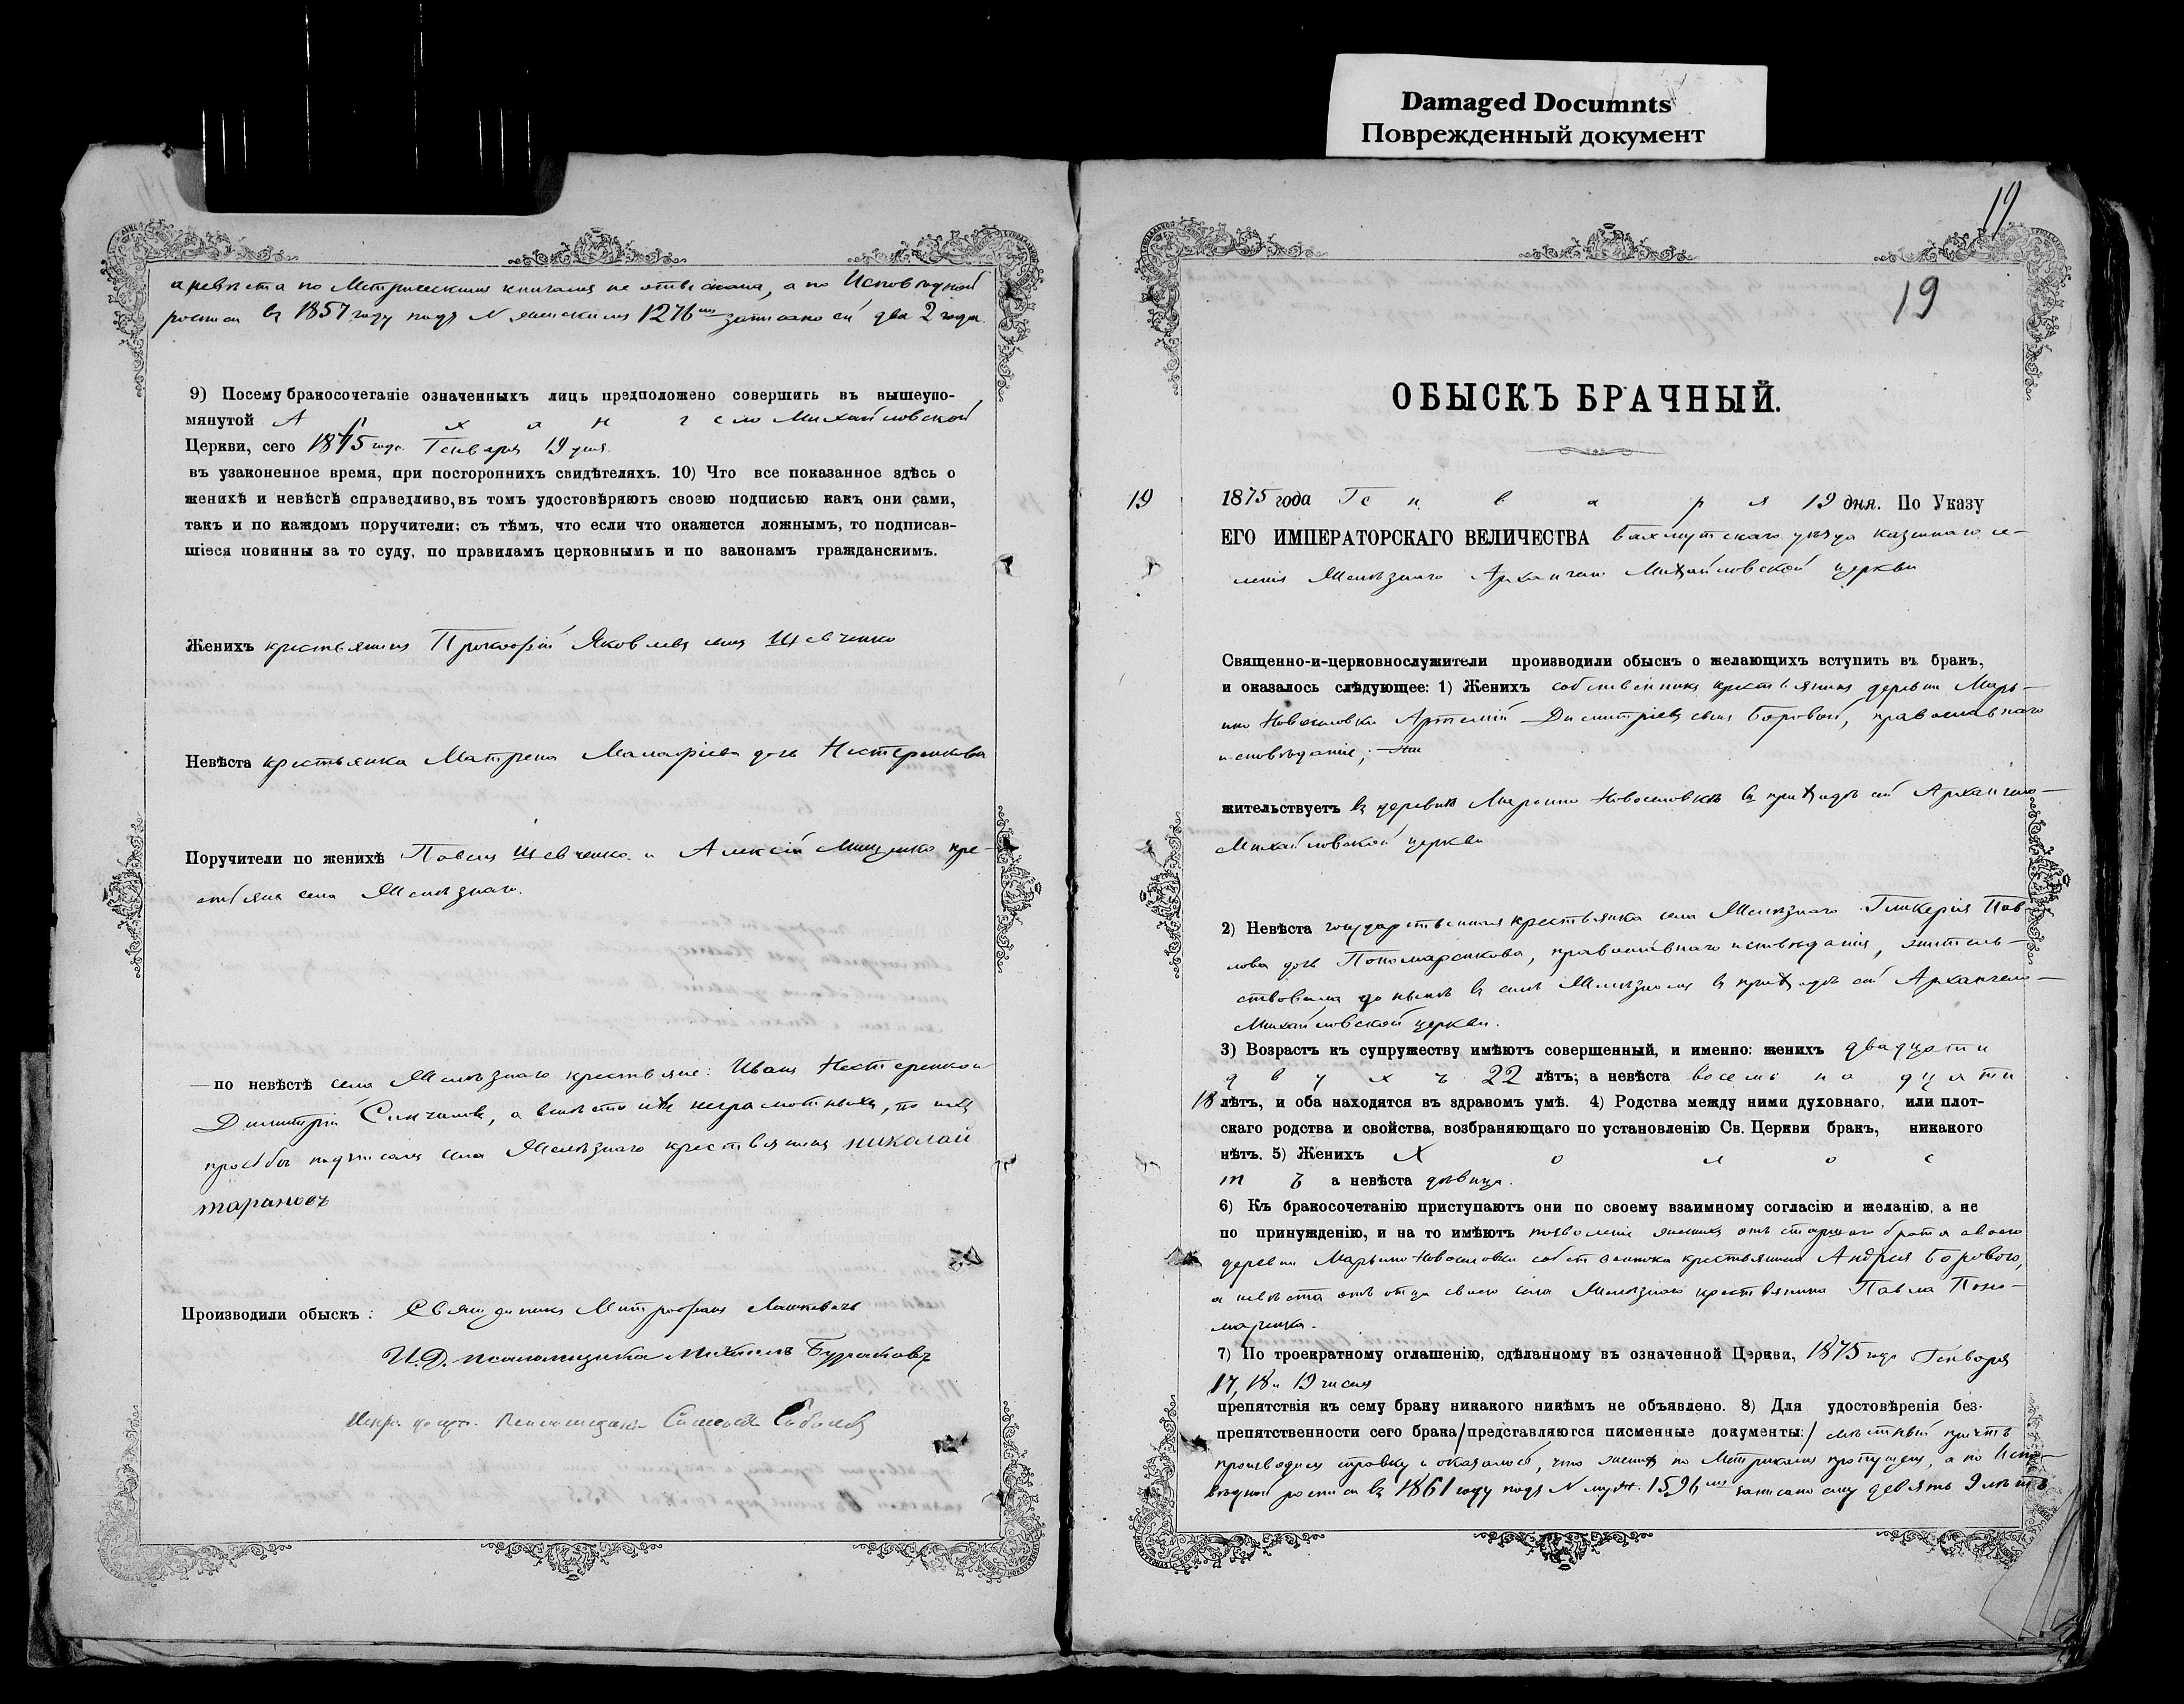 Damaged Documnts
Поврежденный документ
а невѣста по Метрическимъ книгамъ не отыскана, а по Исповѣдной
росписи въ 1857 году подъ N женскимъ 1276мъ записано ей два 2 года.
9) Посему бракосочетаніе означенныхъ лицъ предположено совершить въ вышеупо-
мянутой Архангело Михайловской
Церкви, сего 1875 года Генваря 19 дня
въ узаконенное время, при постороннихъ свидѣтеляхъ. 10) Что все показанное здѣсь о
женихѣ и невѣстѣ справедливо, въ томъ удостовѣряютъ своею подписью какъ они сами,
такъ и по каждомъ поручители; съ тѣмъ, что если что окажется ложнымъ, то подписав-
шіеся повинны за то суду, по правиламъ церковнымъ и по законамъ гражданскимъ.
Женихъ крестьянинъ Прокофій Яковлевъ сынъ Шевченко
Невѣста крестьянка Матрена Малафіева дочь Нестеренкова
Поручители по женихѣ Павелъ Шевченко и Алексій Мищенко кре-
стьяне села Желѣзнаго.
—по невѣстѣ села Желѣзнаго крестьяне: Иванъ Нестеренко и
Димитрій, а вмѣсто ихъ неграмотныхъ, по ихъ
просьбѣ подписалъ села Желѣзнаго крестьянинъ николай
тарановъ
Производили обыскъ: Священникъ Митрофанъ
И. Д. псаломщика Михаилъ Бураковъ
псаломщика
19
19
ОБЫСКЪ БРАЧНЫЙ.
19 1875 года Генваря 19 дня. По Указу
ЕГО ИМПЕРАТОРСКАГО ВЕЛИЧЕСТВА Бахмутскаго уѣзда казеннаго се-
ленія Желѣзнаго Архангело Михайловской церкви
Священно-и-церковнослужители производили обыскъ о желающихъ вступить въ бракъ,
и оказалось слѣдующее: 1) Женихъ собственникъ крестьянинъ деревни Марь-
ино Новоселовки Артемій Димитріевъ сынъ Боровой, православнаго
исповѣданія;
жительствуетъ въ деревнѣ Марьино Новоселовкѣ въ приходѣ сей Архангело—
Михайловской церкви
2) Невѣста государственная крестьянка села Желѣзнаго Гликерія Пав-
лова дочь Пономаренкова, православнаго исповѣданія, житель-
ствовала до нынѣ въ селѣ Желѣзномъ въ приходѣ сей Архангело—
Михайловской церкви.
3) Возрастъ къ супружеству имѣютъ совершенный, и именно: женихъ двадцати
двухъ 22 лѣтъ; а невѣста восемнадцяти
18 лѣтъ, и оба находятся въ здравомъ умѣ. 4) Родства между ними духовнаго, или плот-
скаго родства и свойства, возбраняющаго по установленію Св. Церкви бракъ, никакого
нѣтъ. 5) Женихъ Холос
тъ а невѣста дѣвица.
6) Къ бракосочетанію приступаютъ они по своему взаимному согласію и желанію, а не
по принужденію, и на то имѣютъ позволеніе женихъ отъ старшаго брата своего
деревни Марьино Новоселовки собственника крестьянина Андрея Борового,
а невѣста отъ отца своего села Желѣзнаго крестьянина Павла Поно-
маренка.
7) По троекратному оглашенію, сдѣланному въ означенной Церкви, 1875 года Генваря
17, 18 и 19 числа
препятствія къ сему браку никакого никѣмъ не объявлено. 8) Для удостовѣренія без-
препятственности сего брака/представляются писменные документы:/ мѣстный причтъ
производилъ справку и оказалось, что женихъ по Метрикамъ пропущенъ, а по Испо-
вѣдной росписи въ 1861 году подъ N муж. 1596мъ записано ему девять 9 лѣтъ